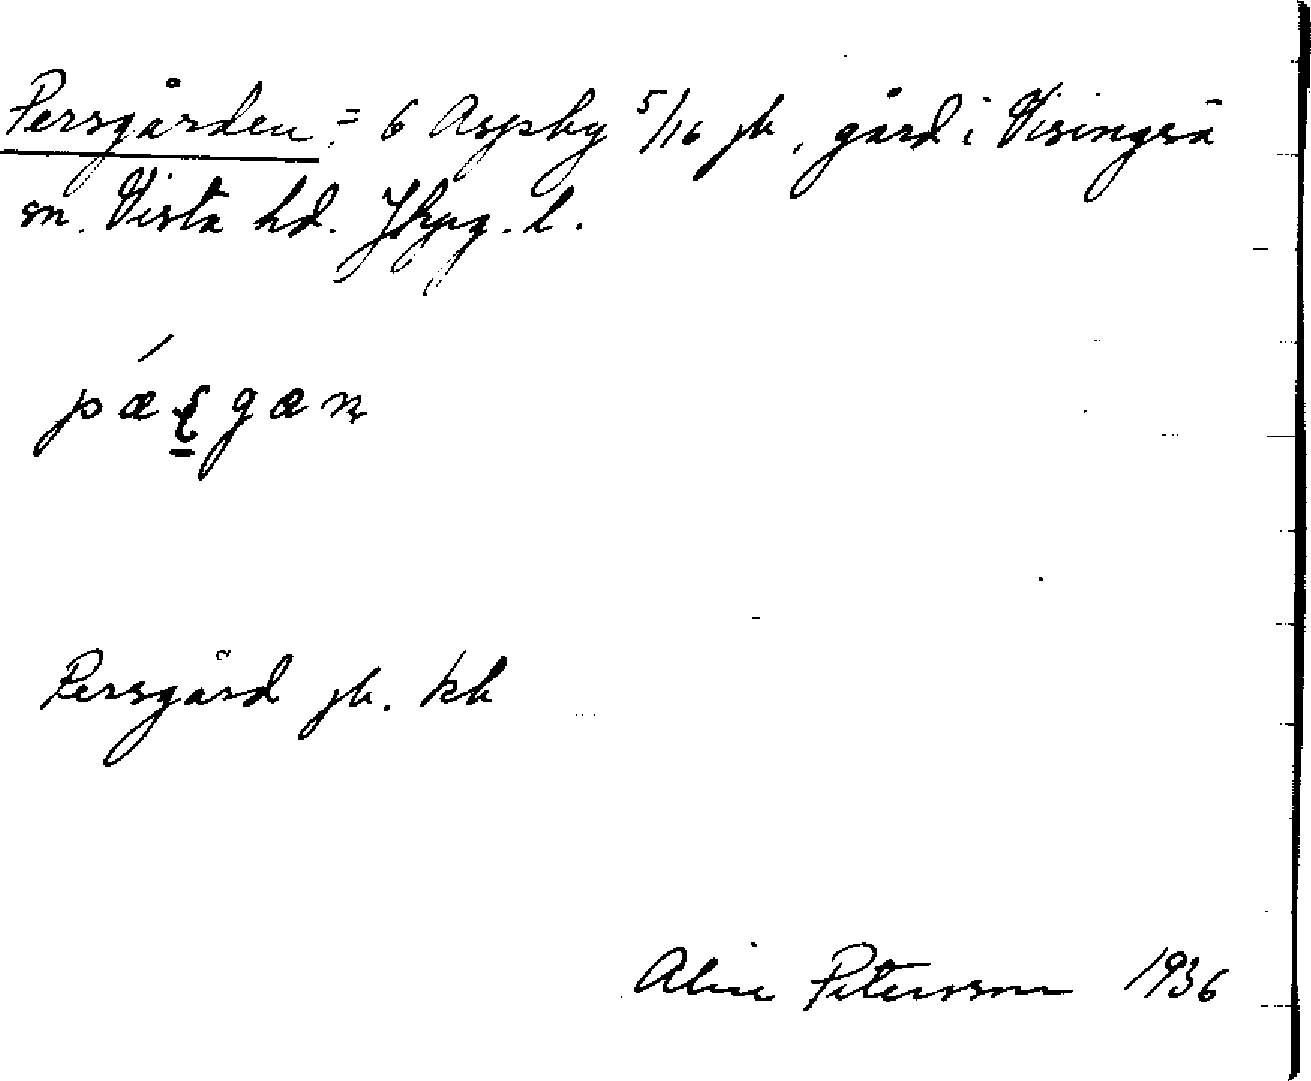 Persgården = 6 Aspsby 5/16 jb, gård i Visingsö
sn. Vista hd. Jkpg. l.
Persgård jb. kb
Aline Petersson 1936